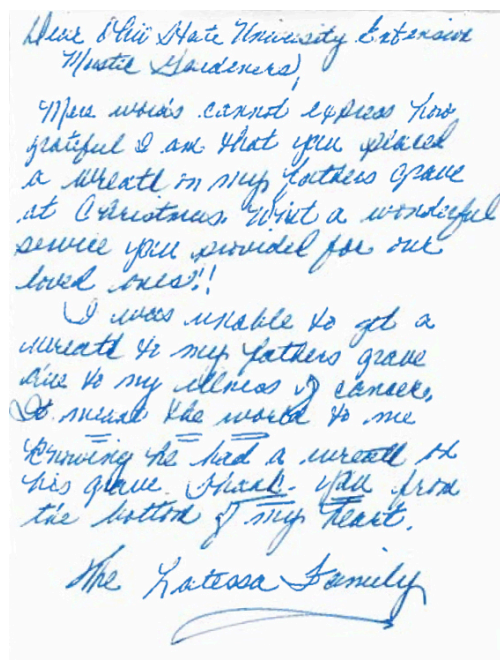 Dear Ohio State University Extension
Master Gardeners,
Mere words cannot express how
grateful I am that you placed
a wreath on my fathers grave
at Christmas. What a wonderful
service you provided for our
loved ones!!
I was unable to get a
wreath to my fathers grave
due to my illness of cancer.
It meant the world to me
knowing he had a wreath on
his grave. Thank you from
the bottom of my heart.
The Latessa Family